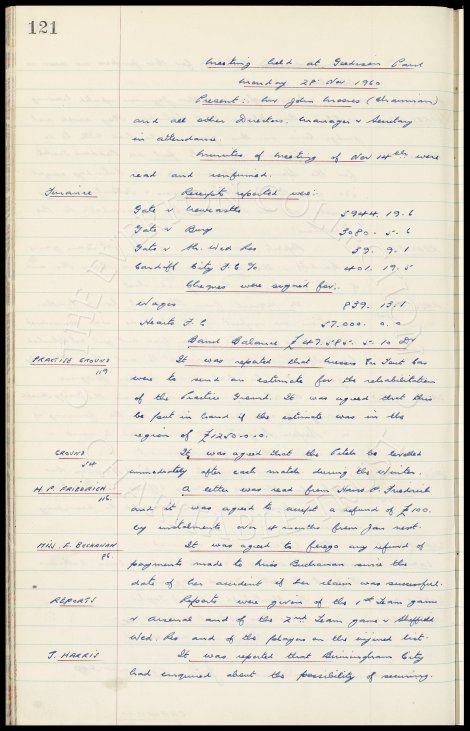 121
Meeting held at Goodison Park
Monday 28th Nov 1960
Present: Mr John Moores (Chairman)
and all other Directors. Manager & Secretary
in attendance.
Minutes of Meeting of Nov 14th were
read and confirmed.
Finance Receipts reported were:
Gate v Newcastle 5944. 19. 6
Gate v Bury 3080. 5. 6
Gate v Sh. Wed Res 39. 9. 1
Cardiff City F.C. 401. 19. 5
Cheques were signed for:
Wages 839. 13. 1
Hearts F.C. 57.000. 0. 0
Bank Balance £47.585. 5. 10 Dr
PRACTISE GROUND It was reported that Messrs En Tout Cas
119
were to send an estimate for the rehabilitation
of the Practice Ground. It was agreed that this
be put in hand if the estimate was in the
region of £1250.0.0.
GROUND It was agreed that the Pitch be levelled
54
immediately after each match during the Winter.
H. P. FRIEDRICH A letter was read from Hans P. Friedrich
116
and it was agreed to accept a refund of £100.
by instalments over 4 months from Jan next.
MISS. F. BUCHANAN It was agreed to forego any refund of
86
payments made to Miss Buchanan since the
date of her accident if her claim was successful.
REPORTS Reports were given of the 1st Team game
v Arsenal and of the 2nd Team game v Sheffield
Wed. Res and of the players on the injured list.
J. HARRIS It was reported that Birmingham City
had enquired about the possibility of securing.
THE EVERTON COLLECTION
CHARITABLE